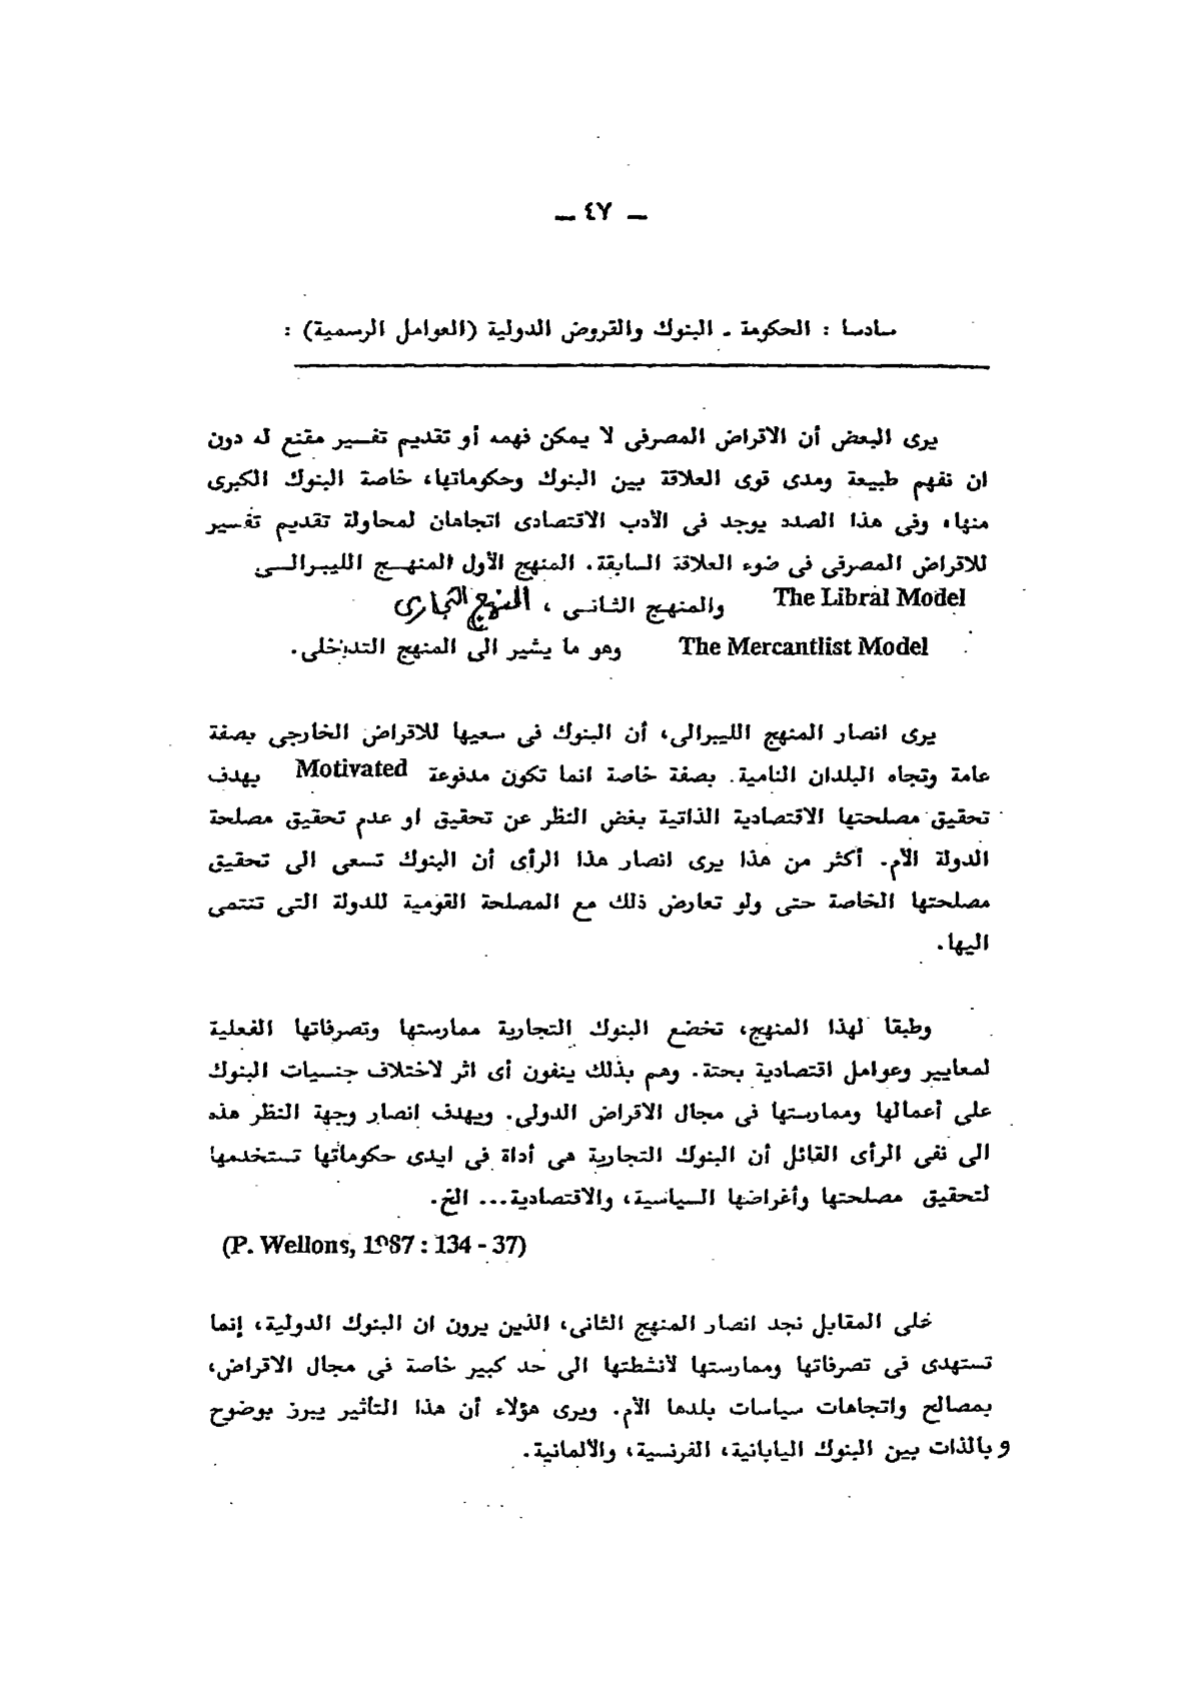 ـ ٤٧ ـ
سادسا : الحكومة ـ البنوك والقروض الدولية (العوامل الرسمية) :
يرى البعض أن الاقراض المصرفى لا يمكن فهمه أو تقديم تفسير مقنع له دون
ان نفهم طبيعة ومدى قوى العلاقة بين البنوك وحكوماتها، خاصة البنوك الكبرى
منها، وفى هذا الصدد يوجد فى الأدب الاقتصادى اتجاهان لمحاولة تقديم تفسير
للاقراض المصرفى فى ضوء العلاقة السابقة. المنهج الأول المنهج الليبرالى
The Libral Model والمنهج الثانى ، المنهج التجارى
The Mercantlist Model وهو ما يشير الى المنهج التدخلى.
يرى انصار المنهج الليبرالى، أن البنوك فى سعيها للاقراض الخارجى بصفة
عامة وتجاه البلدان النامية. بصفة خاصة انما تكون مدفوعة Motivated بهدف
تحقيق مصلحتها الاقتصادية الذاتية بغض النظر عن تحقيق او عدم تحقيق مصلحة
الدولة الأم. أكثر من هذا يرى انصار هذا الرأى أن البنوك تسعى الى تحقيق
مصلحتها الخاصة حتى ولو تعارض ذلك مع المصلحة القومية للدولة التى تنتمى
اليها.
وطبقا لهذا المنهج، تخضع البنوك التجارية ممارستها وتصرفاتها الفعلية
لمعايير وعوامل اقتصادية بحتة. وهم بذلك ينفون أى اثر لاختلاف جنسيات البنوك
على أعمالها وممارستها فى مجال الاقراض الدولى. ويهدف انصار وجهة النظر هذه
الى نفى الرأى القائل أن البنوك التجارية هى أداة فى ايدى حكوماتها تستخدمها
لتحقيق مصلحتها وأغراضها السياسية، والاقتصادية... الخ.
(P. Wellons, 1987 : 134 - 37)
على المقابل نجد انصار المنهج الثانى، الذين يرون ان البنوك الدولية، إنما
تستهدى فى تصرفاتها وممارستها لأنشطتها الى حد كبير خاصة فى مجال الاقراض،
بمصالح واتجاهات سياسات بلدها الأم. ويرى هؤلاء أن هذا التأثير يبرز بوضوح
و بالذات بين البنوك اليابانية، الفرنسية، والألمانية.